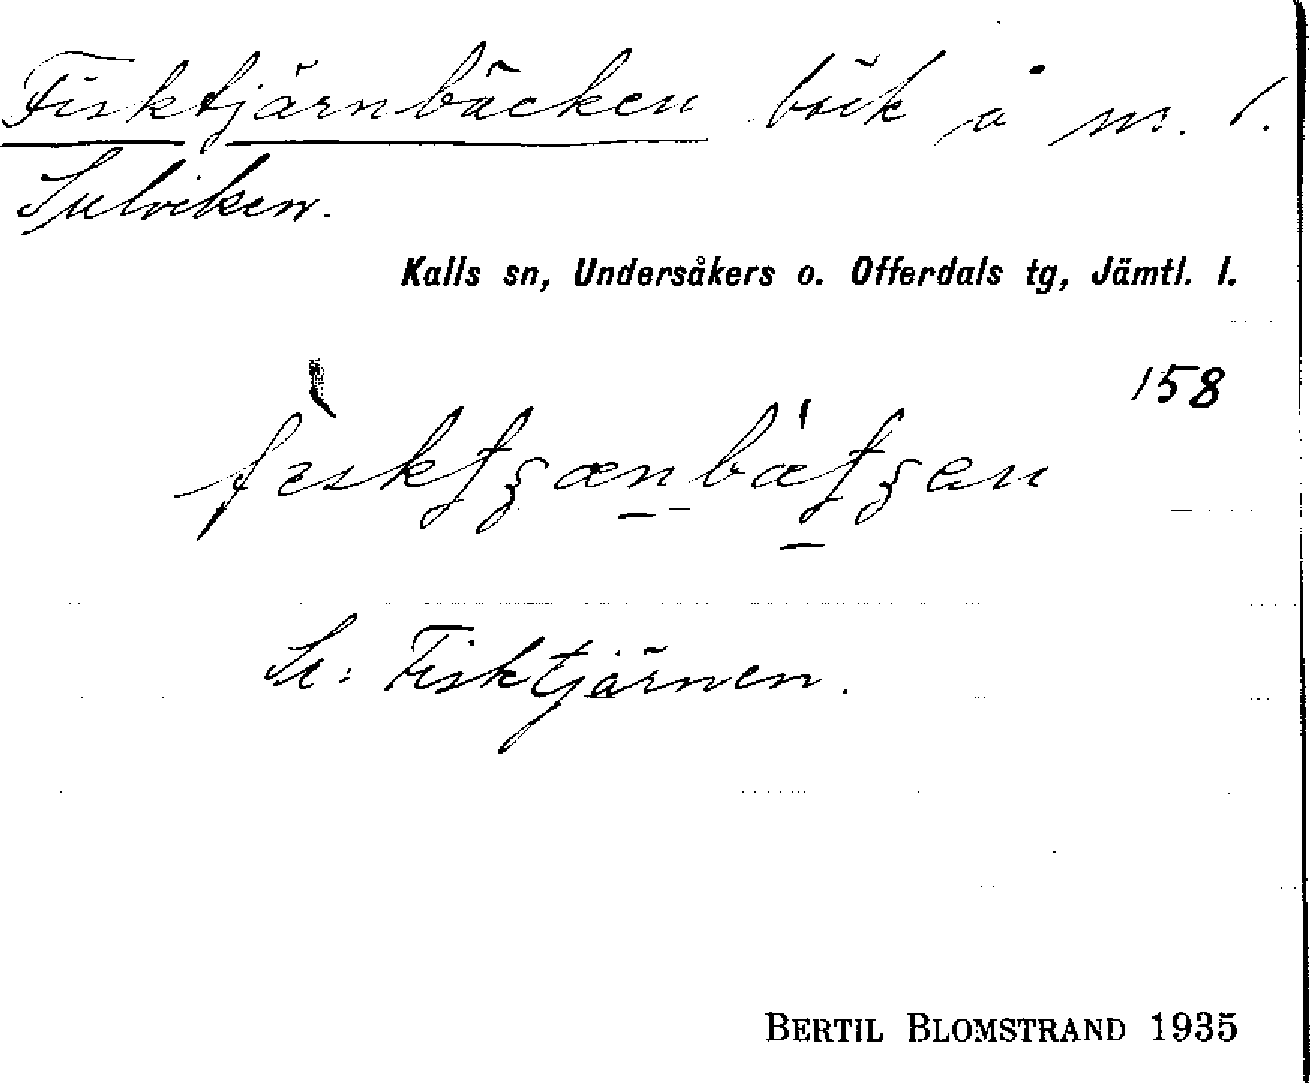 Fisktjärnbäcken bäck å m. l.
Sulviken.
Kalls sn, Undersåkers o. Offerdals tg, Jämtl. l.
158
Se: Fisktjärnen.
BERTIL BLOMSTRAND 1935